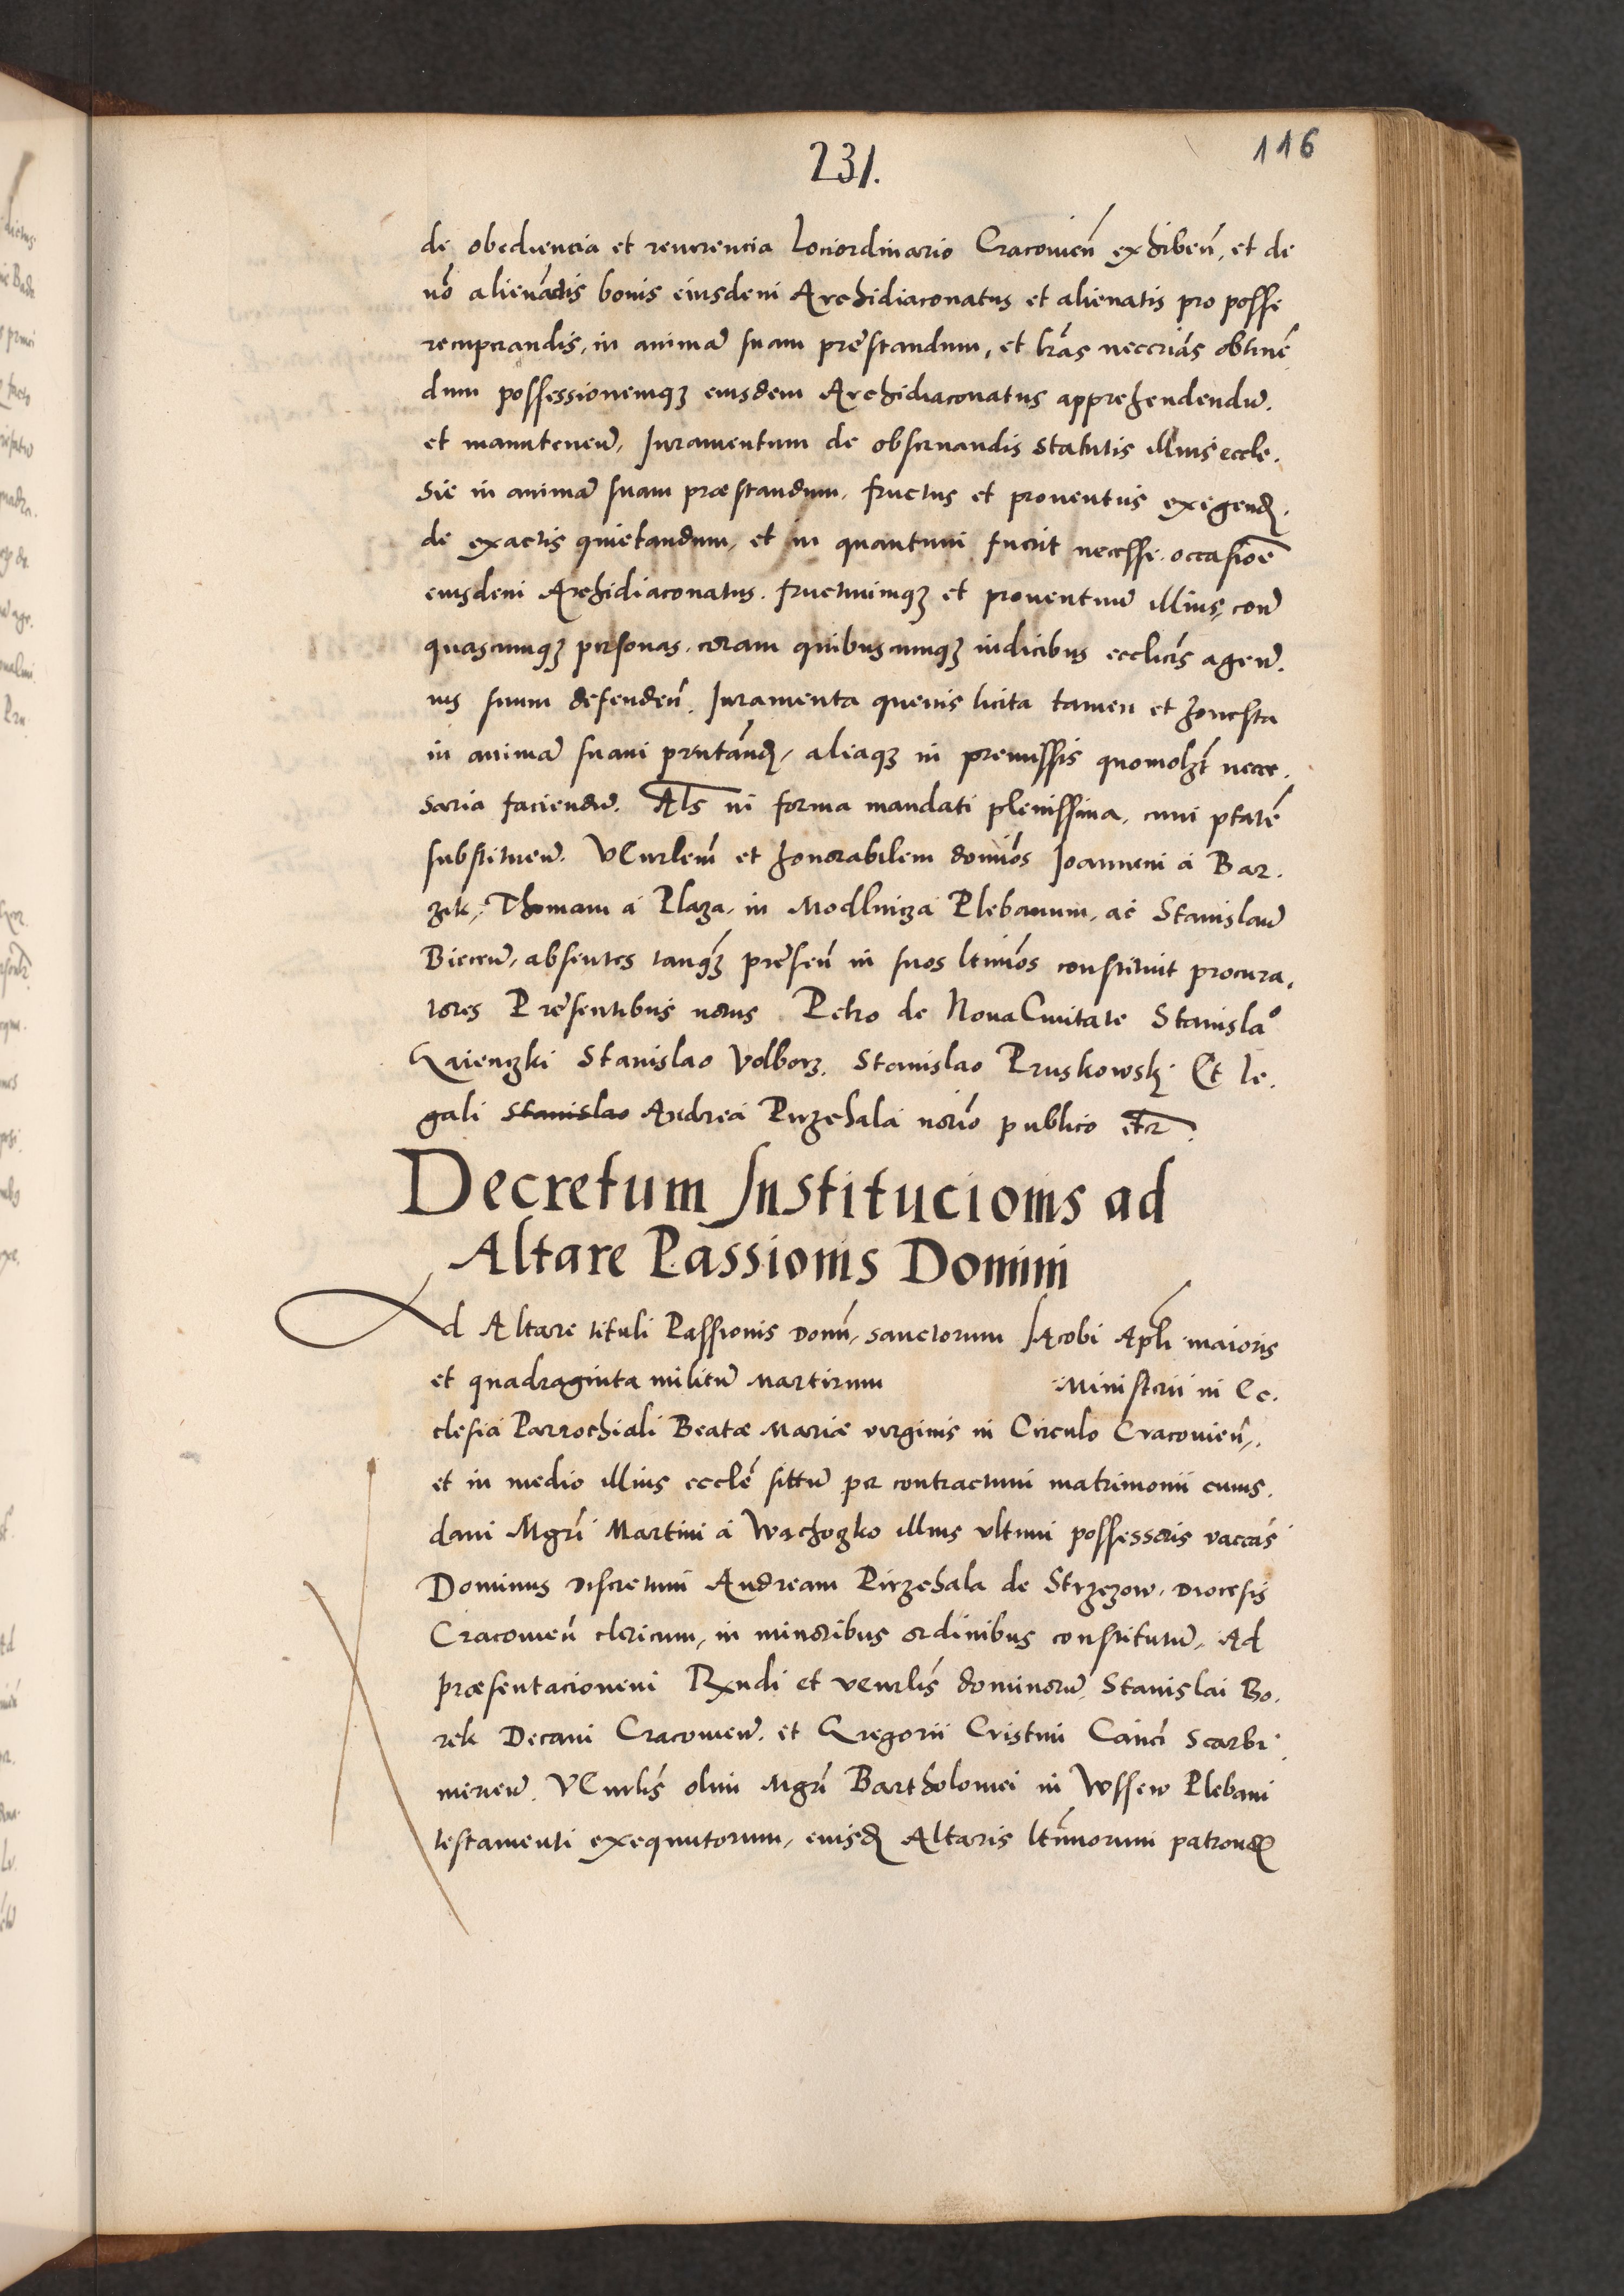 231.
116
de obediencia et reuerencia Lociordinario Cracovień exhibeń, et de
nō alienādis bonis eiusdem Archidiaconatus et alienatis pro posse
recuperandis, in animā suam prēstandum, et lrās neccriās obtinē
dum possessionemqʒ eiusdem Archidiaconatus apprehendendū.
et manuteneñ, Iuramentum de obseruandis statutis illius eccle.
sie in animā suam præstandum, fructus et prouentus exigenđ,
de exactis quietandum, et in quantum fuerit necesse, occasioē
eiusdem Archidiaconatus, fructuumqʒ et prouentuū illius, con̄
quascumqʒ personas, coram quibuscumqʒ iudicibus ecclicis ageñ.
ius suum defendeń. Iuramenta queuis licita tamen et honesta
in animā suam prestānđ, aliaqʒ in premissis quomolʒt nece.
saria faciendū. Als in forma mandati plenissima, cum ptatē
substitueñ. VEnrlem̄ et honorabilem domiōs Ioannem à Bar.
zik, Thomam à Plaza, in Modlnicza Plebanum, ac Stanislaū
Bieceñ, absentes tanqʒ prēseń in suos ltimōs constituit procura,
tores Prēsentibus notus Petro de Noua Ciuitate Stanislaº
Gaienczki Stanislao Volborz. Stanislao Pruskowskj Et le.
gali Stanislao Andrea Pirzchala norio publico etc.
Decretum Institucionis ad
Altare Passionis Domini
Ad Altare tituli Passionis Domī, sanctorum Iacobi Apli maioris
et quadraginta militū martirum Ministerii in Ec.
clesia Parrochiali Beatæ Mariæ virginis in Circulo Cracovień,.
et in medio illius ecclē sittū per contractum matrimonii cuius.
dam Mgri Martini à Wachozko illius vltimi possessoris vaccās
Dominus discretum Andream Pirzchala de Strzezow, Diocesis
Cracovień clericum, in minoribus ordinibus constitutū, Ad
præsentacionem Rxndi et venrlis dominorū Stanislai Bo,
rek Decani Cracoviēñ. et Gregorii Cristini Canci Scarbi
mirieñ. VEnrlis olim Mgri Bartholomei in Wssew Plebani
testamenti exequutorum, eiusđ Altaris ltimorum patronoꝝ